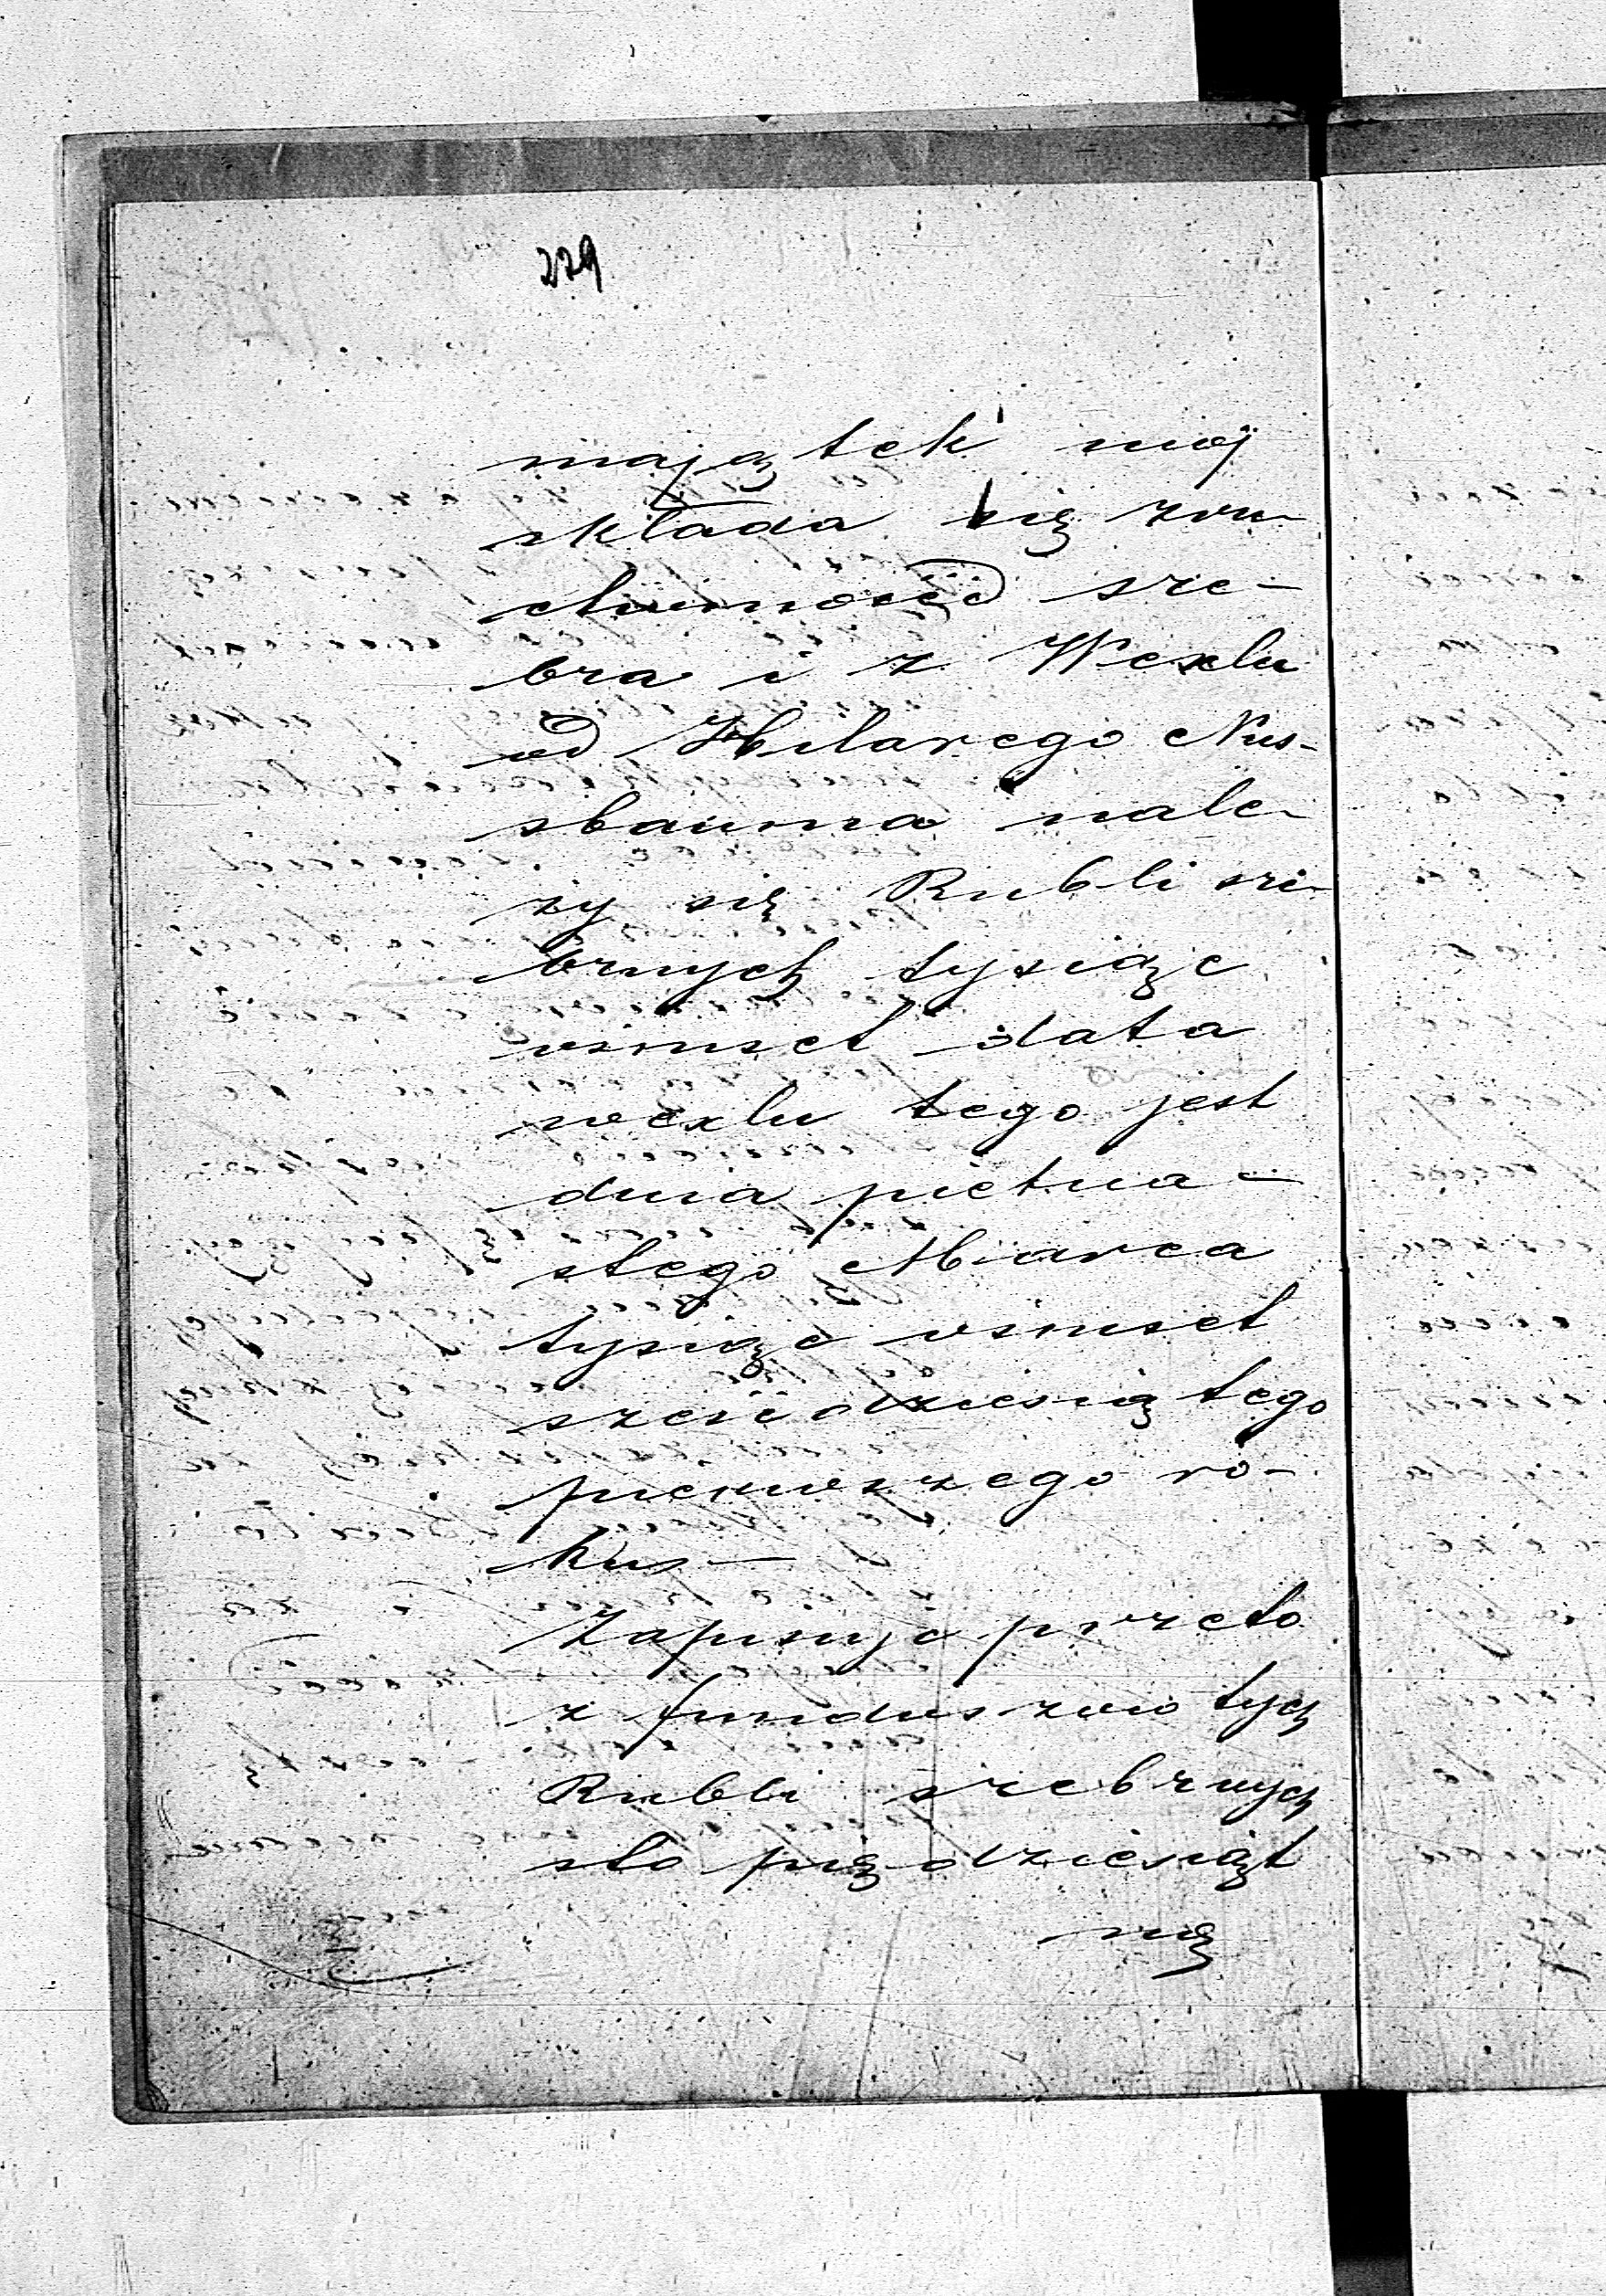 229
majątek mój
składa się z ru
chomości sre-
bra i z Wexlu
od Hilarego Nus-
sbauma nale-
ży się Rubli sre-
brnych tysiąc
osmset data
wexlu tego jest
dnia pietna-
stego Marca
tysiąc osmset
sześćdziesiątego
pierwszego ro-
ku
Zapisuje przeto
z funduszow tych
Rubli srebrnych
sto pięćdziesiąt